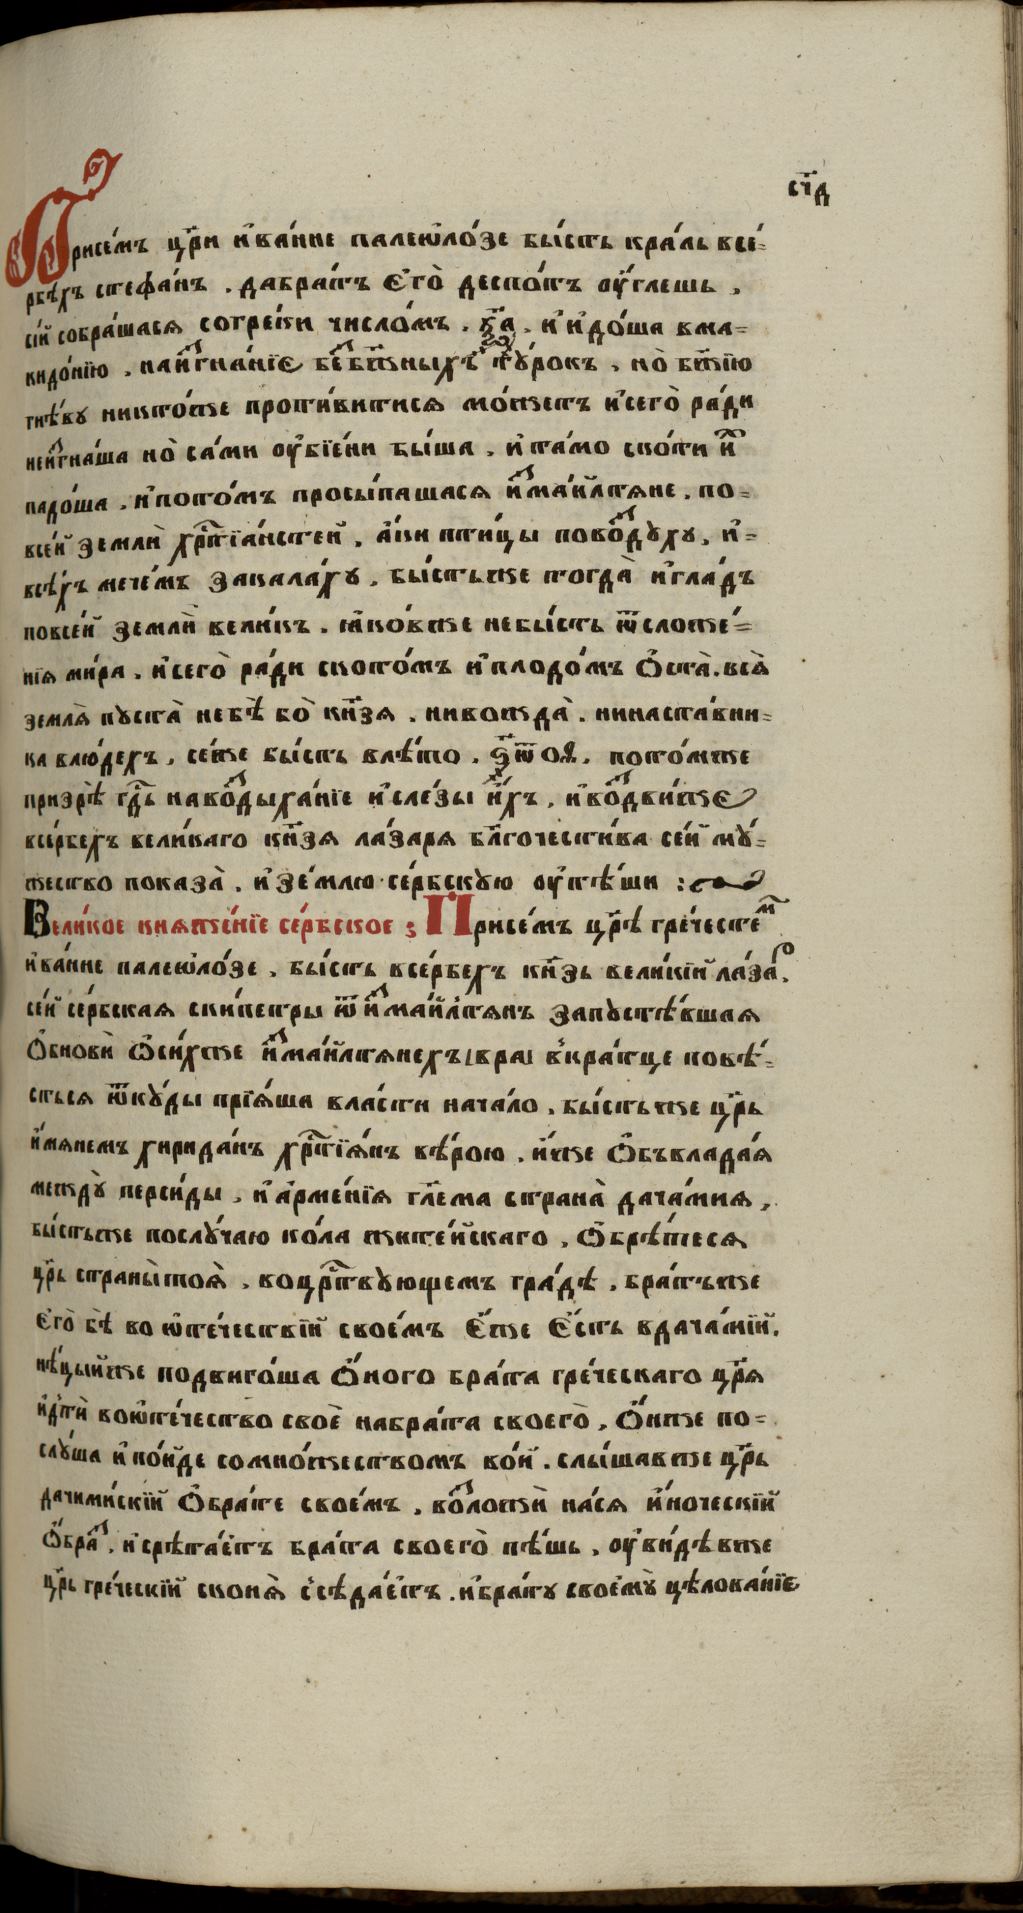 сл҃д
Присе́мъ цр҃и и҆ва́нне палеѡло́зе бы́сть кра́ль все́-
рбѣхъ стефа́нъ . дабратъ є҆го̀ деспо́тъ ѹ҆́глешь ,
сі́й собра́шася согре́ки число́мъ . к҃а . и҆ и҆до́ша вма-
кидо́нїю , наи҆згна́нїе безбо́жныхъ тꙋ́рокъ , но̀ бж҃їю
гнѣ́вꙋ никто́же проти́витися мо́жетъ и҆сего̀ ра́ди
неи҆згна́ша но̀ са́ми ѹ҆бїе́ни бы́ша . и҆та́мо ско́ти и҆х
падо́ша . и҆пото́мъ просы́пашася и҆зма́илтяне . по-
все́й землѝ хрⷭ҇тїа́нстей , а҆́ки пти́цы повоздꙋхꙋ , и҆-
всѣ́хъ мече́мъ закала́хꙋ . бы́стьже тогда̀ и҆гла́дъ
повсе́й землѝ вели́къ . ꙗ҆ко́вже небы́сть ѿсложе́-
нїя ми́ра . и҆сего̀ ра́ди ското́мъ и҆плодо́мъ ѻ҆ста̀ . вся̀
земля̀ пꙋста̀ небѣ̀ бо̀ кн҃зя . нивожда̀ . нинаста́вни-
ка влю́дехъ , се́же бы́сть влѣ́то . потомже
призрѣ̀ гдⷭ҇ь навоздыха́нїе и҆сле́зы и҆́хъ , и҆воздви́же
всербехъ вели́каго кн҃зя ла́заря бл҃гочести́ва се́й мꙋ́-
жество показа̀ . и҆зе́млю се́рбскꙋю ѹ҆тѣ́ши :
Вели́кое княже́нїе се́рбское ; Присе́мъ цр҃ѣ гре́честем
и҆ва́нне палеѡло́зе , бы́сть всербехъ кн҃зь вели́кїй ла́зар .
се́й се́рбская скипетры ѿ и҆зма́илтянъ запꙋстѣ́вшая
ѻ҆бновѝ ѡ҆си́хже и҆зма́илтянехъ вкра́тце повѣ́-
сться ѿкꙋ́ды прїя́ша вла́сти нача́ло , бы́стьже цр҃ь
и҆́мянемъ хирида́нъ хрⷭ҇тїя́нъ вѣ́рою , и҆́же ѻ҆бъвлада́я
междꙋ̀ перси́ды , и҆арме́нїя гл҃ема страна̀ дача́мия ,
бы́стьже послꙋ́чаю ко́ла жите́йскаго , ѻ҆брѣ́теся
цр҃ь страны̀тоя̀ , воцрⷭ҇твꙋющемъ гра́дѣ . бра́тъже
є҆го̀ бѣ̀ во ѻ҆те́чествїи свое́мъ є҆́же є҆́сть вдача́мїй .
нѣ́цыиже подвиго́ша ѻ҆́ного бра́та гре́ческаго цр҃я
и҆дтѝ воѻ҆те́чество своѐ набра́та своего̀ , ѻ҆́нже по-
слꙋ́ша и҆по́йде сомно́жествомъ во́й . слы́шавже цр҃ь
дачими́скїй ѻ҆бра́те свое́мъ , возложѝ нася̀ и҆́ноческїй
ѻ҆браз , и҆срѣта́етъ бра́та своего̀ пѣ́шь , ѹ҆ви́дѣвже
цр҃ь гре́ческїй сконя̀ ссѣда́етъ . и҆бра́тꙋ своемꙋ̀ цѣлова́нїе